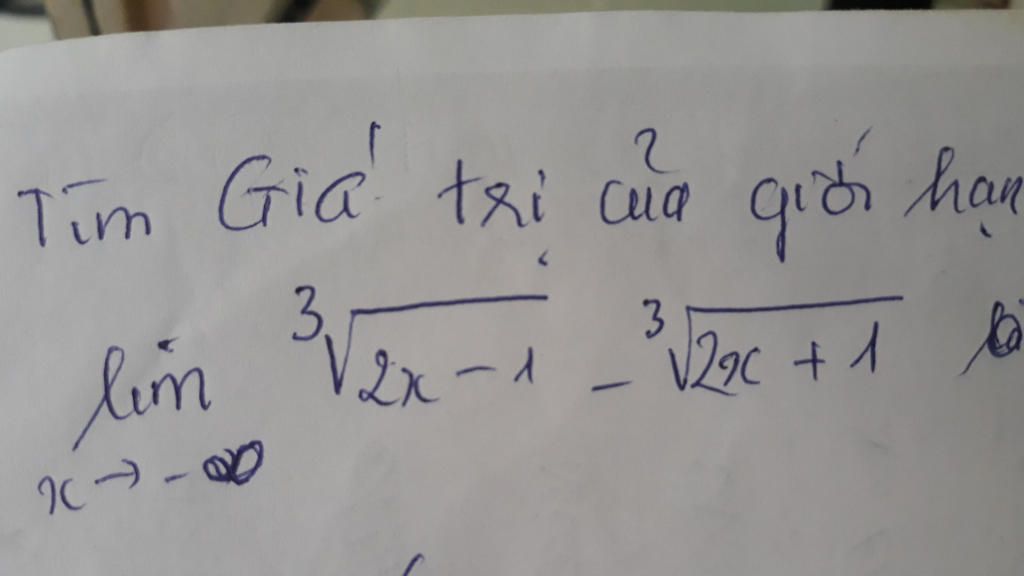 Tìm Giá trị của giới hạn
lim ∛2x - 1 - ∛2x + 1
x → - ∞